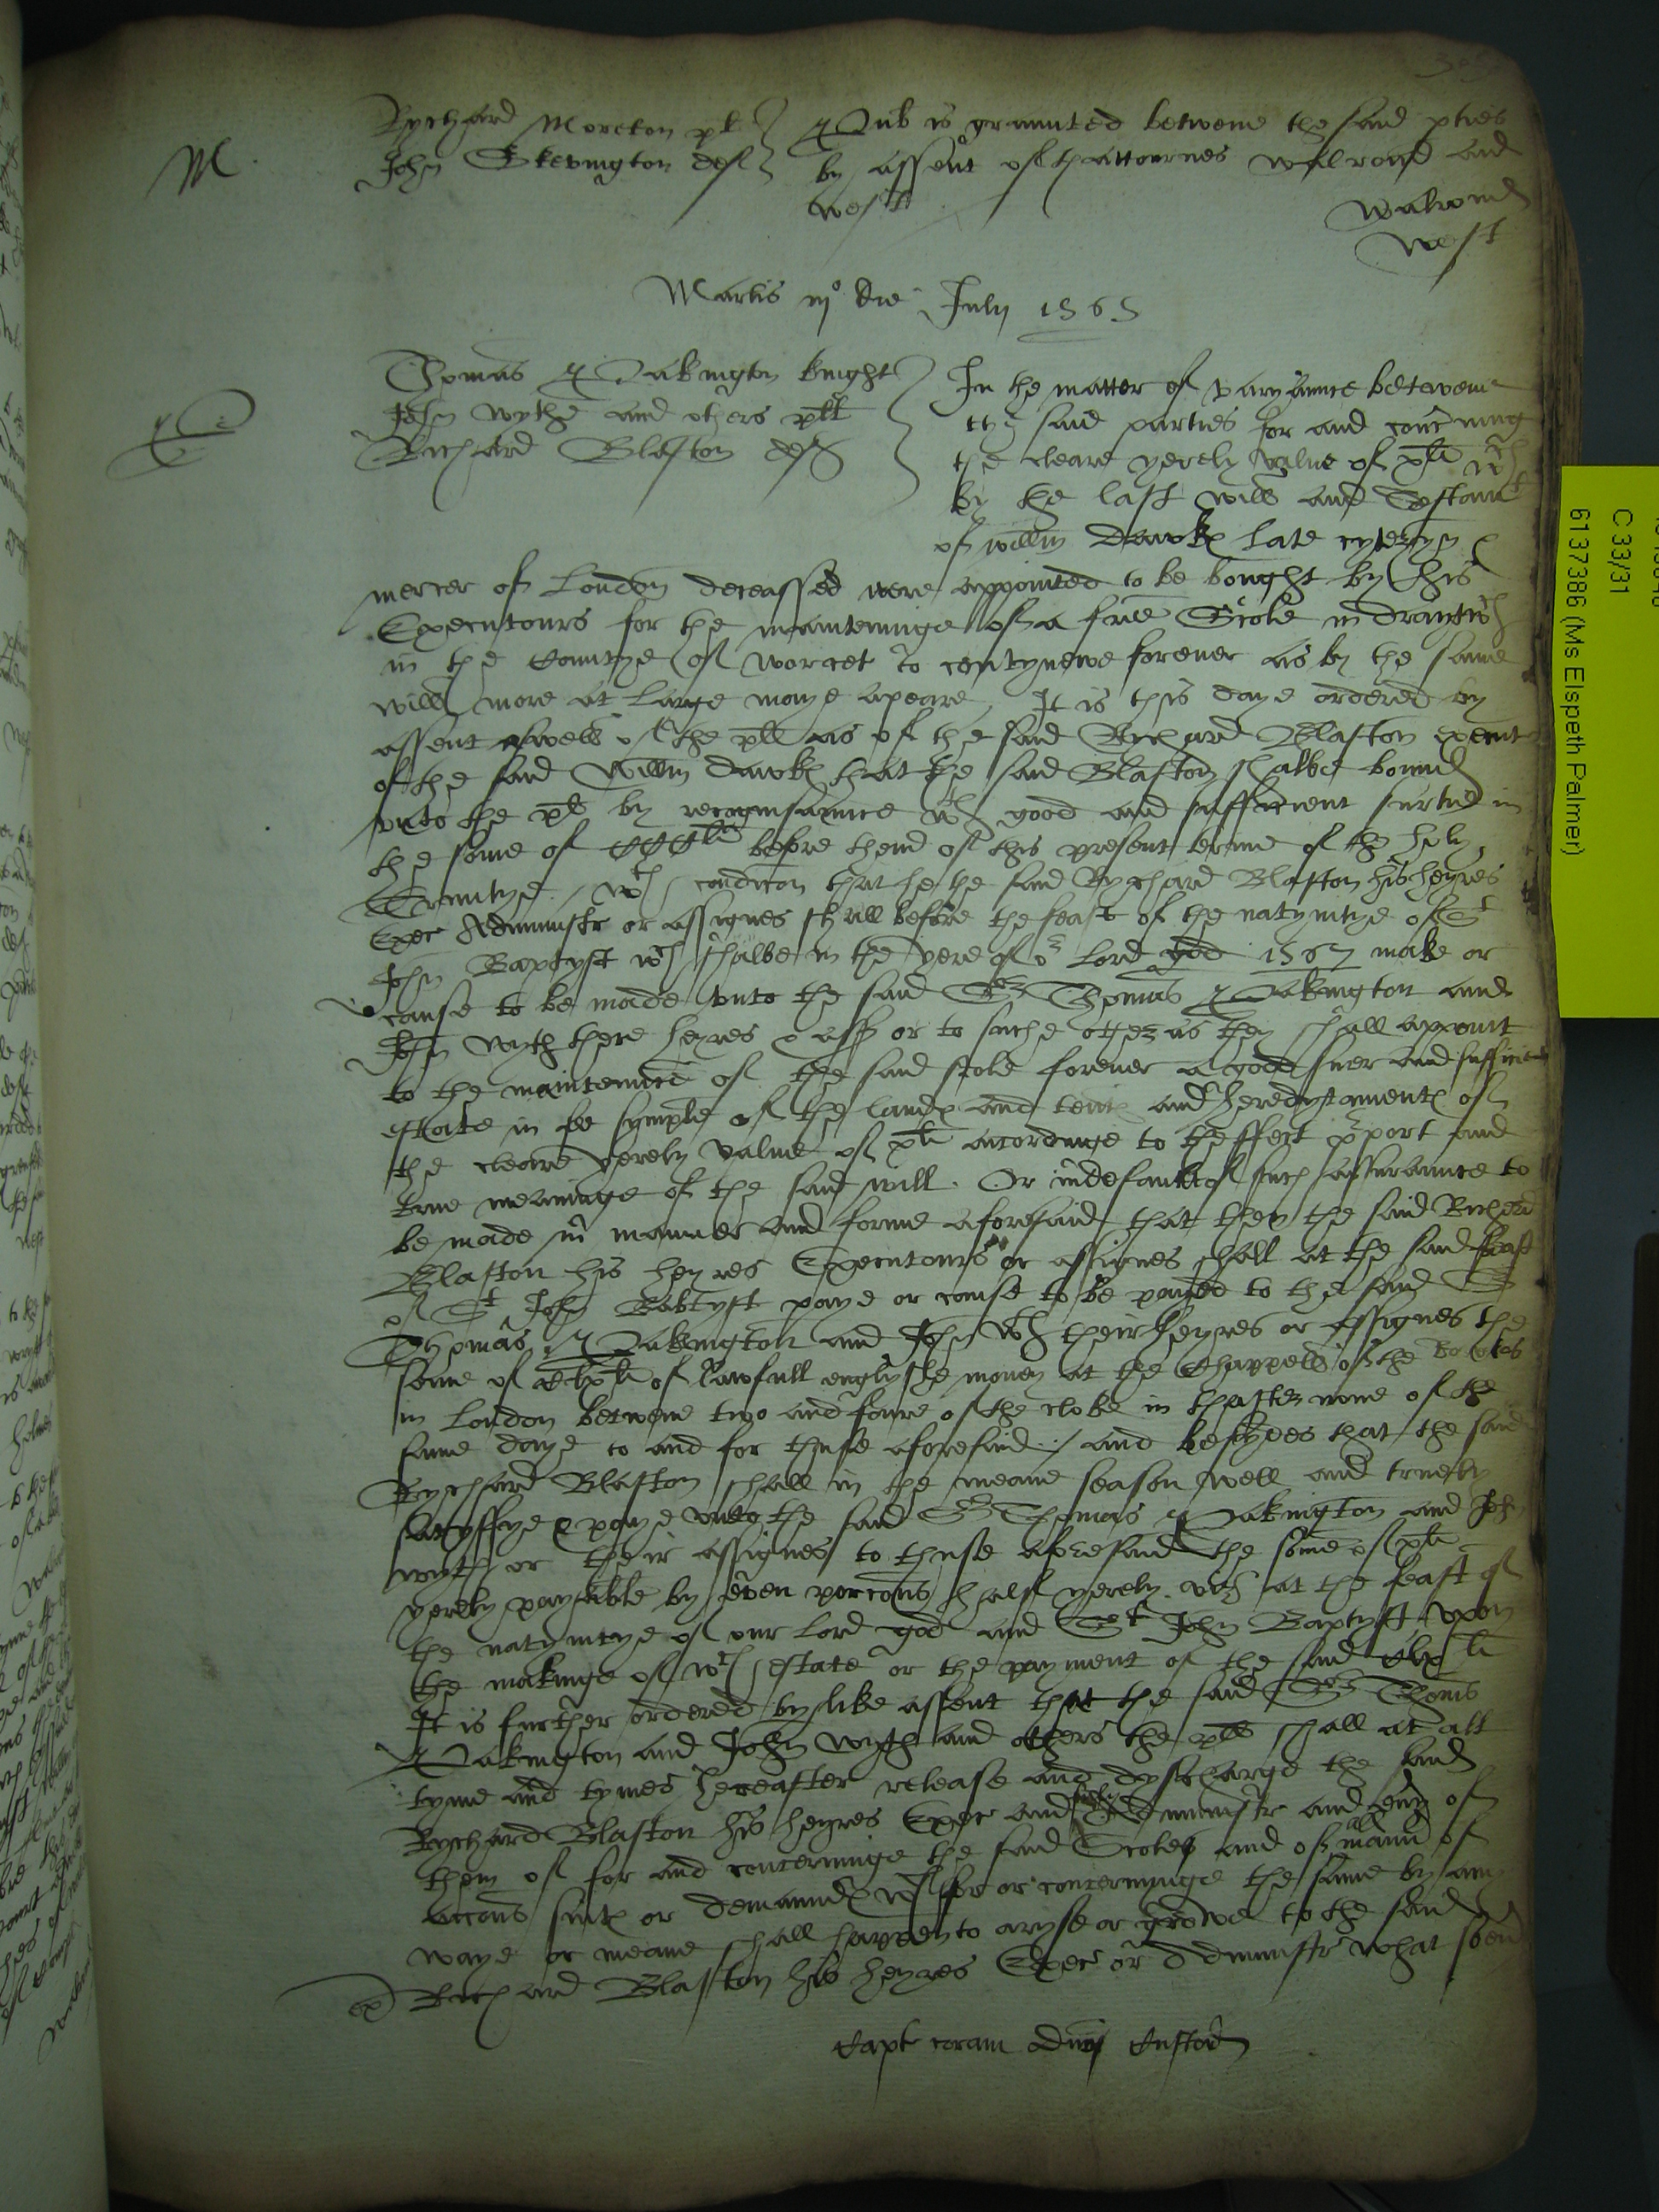 Rychard Moreton pl A Dub is graunted betwene the said pties
M John Skevington def by assent of thattournes Walrond and
West
Walrond
West
Martis iijo die Julij 1565
Thomas Pakington knight In the matter of varyaunce betwene
John Wythe and others plt the said parties for and concning
Richard Blaston def the cleare yerely value of xli wch
by the last will and Testamt
of Willm Dawk late cytezyn
mercer of London deceassed were appointed to be bought by his
Executours for the mainteninge of a free Scole in
in the Countye of Worcet to contynewe forever as by the same
will more at large maye apeare, It is this daye ordered by
assent aswell of the pll as of the said Rychard Blaston execut
of the said Willm Dawk that the said Blaston shalbe bound
unto the pl by recognisaunce wth good and sufficient surties in
the some of CCCli before thend of this present terme of the holy
Trinitye, wth condicon that he the said Rychard Blaston his heyres
Exec Administr or assignes shall before the feast of the natyvitye of St
John Baptyst wch shalbe in the yere of or Lord god 1567 make or
cause to be made unto the said Sr Thomas Pakington and
John Wyth there heyres & ass or to suche other as they shall appoint
to the maintennce of the said scole forever a good suer and sufficient
estate in fee symple of the land and tent and heredytament of
the cleare yerely value of xli accordinge to theffect purport and
true meaninge of the said will. Or in default of such assuraunce to
be made in manner and forme aforesaid that then the said Richard
Blaston his heyres Executours or assignes shall at the said feast
of St John Babtyst paye or cause to be payed to the said Sr
Thomas Pakington and John Wyth their heyres or assignes the
some of li of lawfull englyshe money at the Chappell of the
in London betwene two and foure of the clocke in thafter none of the
same daye to and for thuse aforesaid / and besydes that the said
Rychard Blaston shall in the meane season well and truely
satysffye & paye unto the said Sr Thomas Pakington and John
Wyth or their assignes to thuse aforesaid the some of xli
yerely payable by even porcons half yerely viz at the feast of
the natyvitye of our Lord god and St John Baptyst upon
the makinge of wch estate or the payment of the said li
It is further ordered by like assent that the said Sr Thoms
Pakington and John Wyth and others the plls shall at all
tyme and tymes hereafter release and dyscharge the said
Rychard Blaston his heyres Exec and Administr and evy of
them of for and concerninge the said Scole and of all mann of
accons suit or demaund wch for or concernynge the same by any
waye or meane shall happen to aryse or growe to the said
ex Richard Blaston his heyres Exec or Administr what soev
Capt coram Dno Custod
C 33/31
6137386 (Ms Elspeth Palmer)